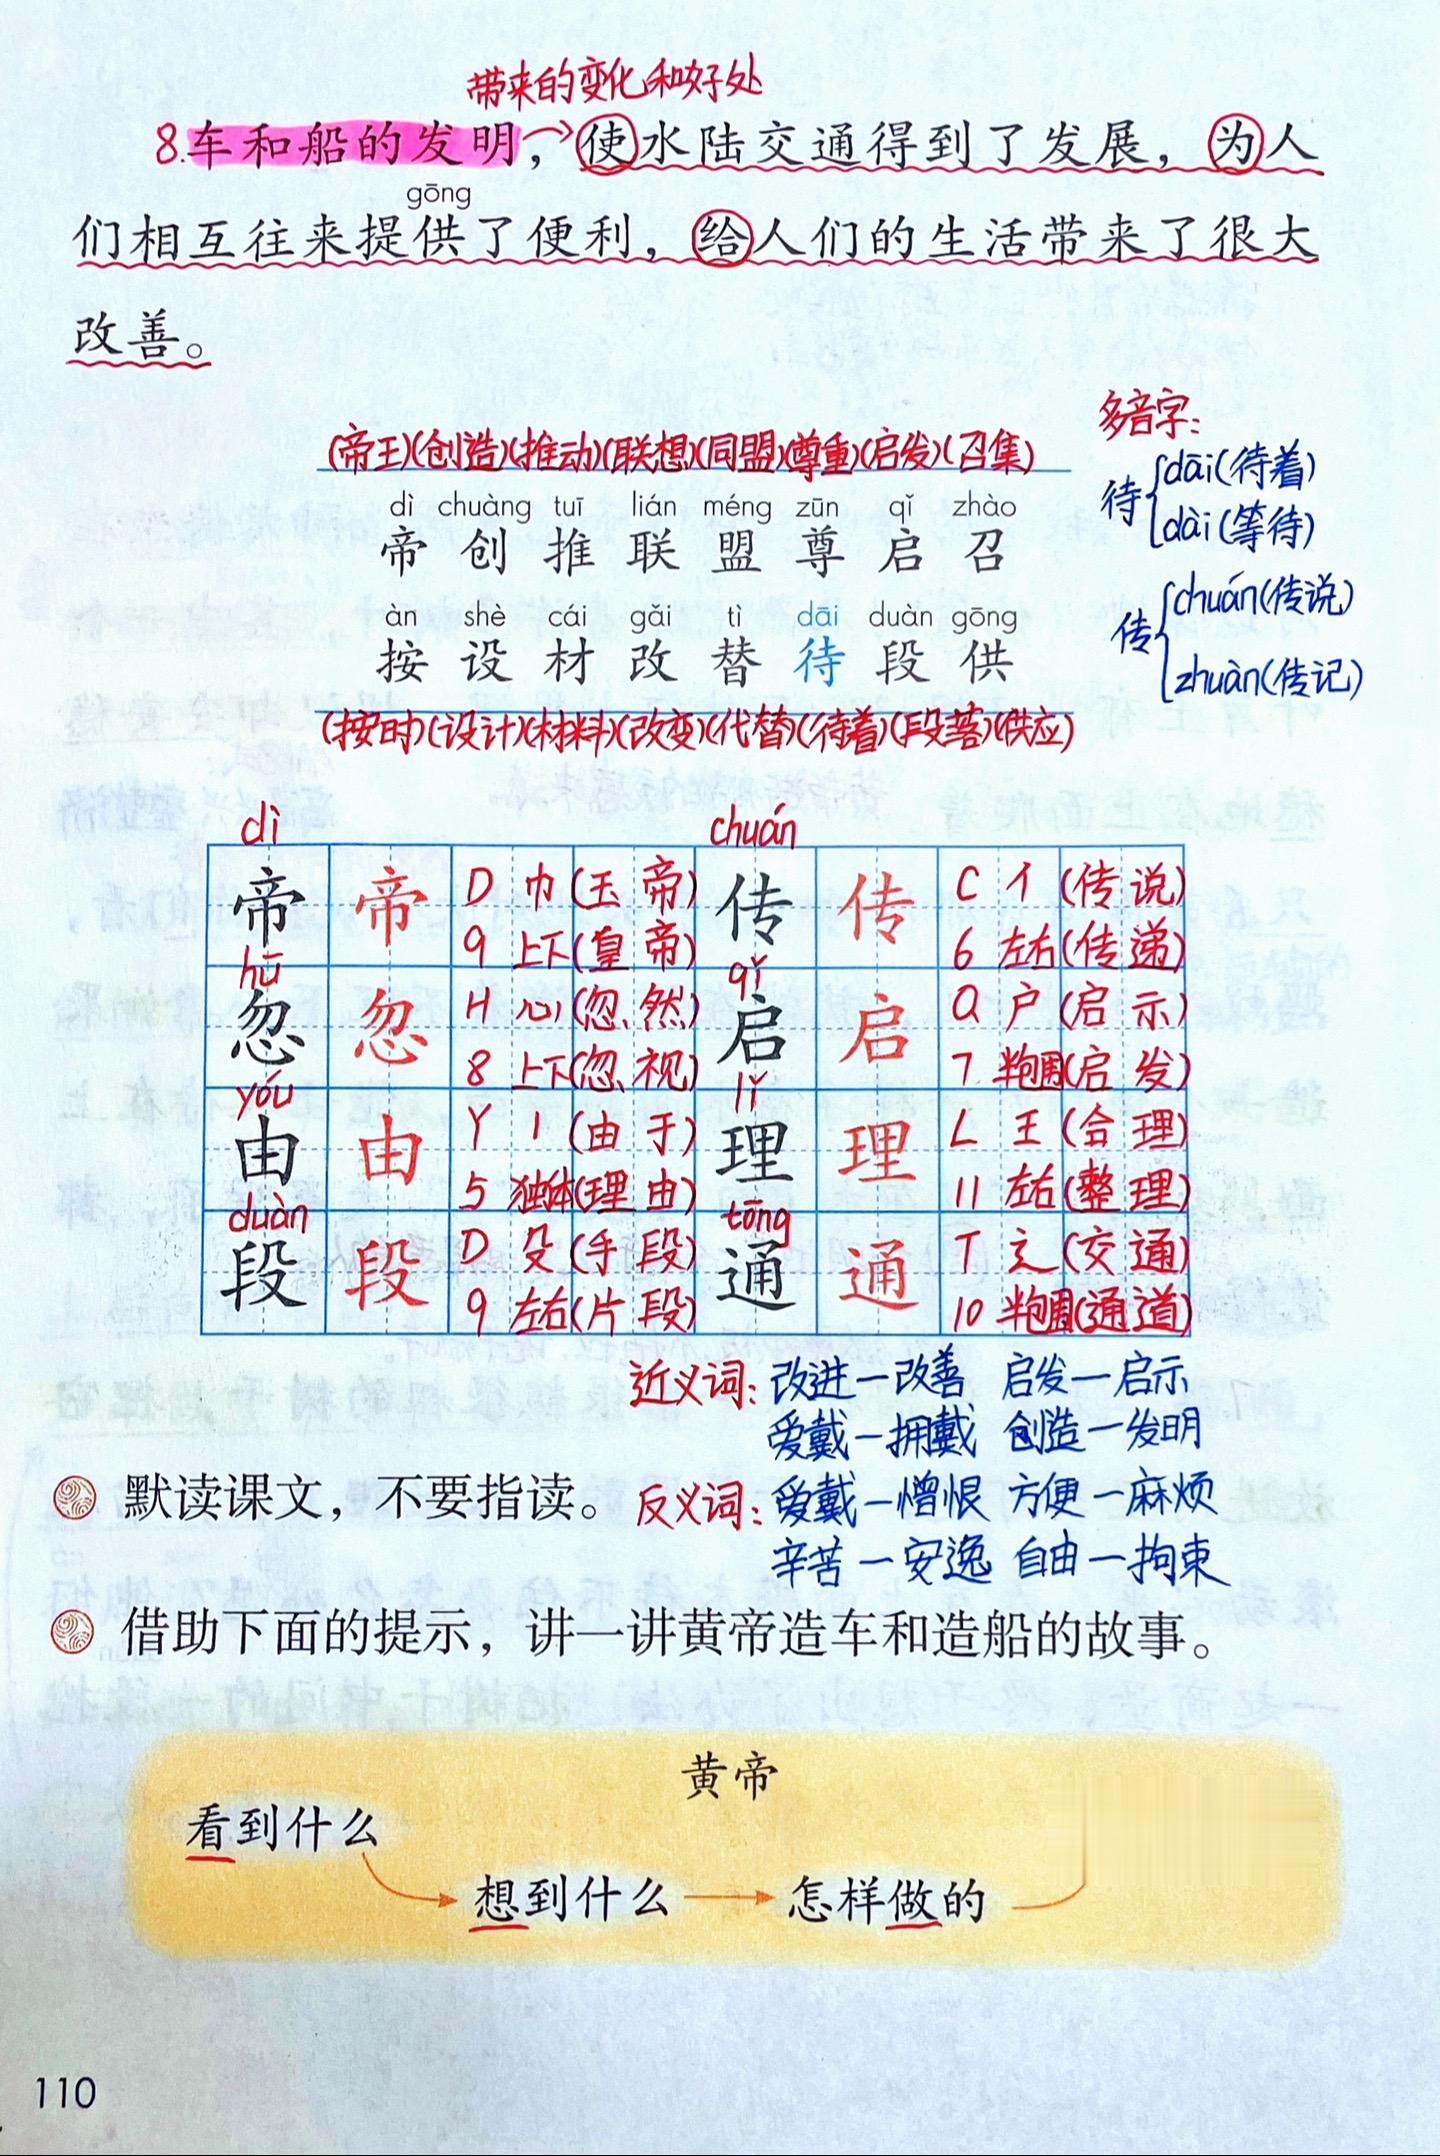 带来的变化和好处
8.车和船的发明，使水陆交通得到了发展，为人
gōng
们相互往来提供了便利，给人们的生活带来了很大
改善。
多音字：
待 dāi(待着)
dài(等待)
传 chuán(传说)
zhuàn(传记)
(帝王)(创造)(推动)(联想)(同盟)(尊重)(启发)(召集)
dì chuàng tuī lián méng zūn qǐ zhào
帝 创 推 联 盟 尊 启 召
àn shè cái gǎi tì dāi duàn gōng
按 设 材 改 替 待 段 供
(按时)(设计)(材料)(改变)(代替)(待着)(段落)(供应)
dì chuán
帝 帝 D 巾 (玉帝) 传 传 C 亻 (传说)
9 上下 (皇帝) 6 左右 (传递)
hū qǐ
忽 忽 H 心 (忽然) 启 启 Q 户 (启示)
8 上下 (忽视) 7 半包围 (启发)
yóu lǐ
由 由 Y 丨 (由于) 理 理 L 王 (合理)
5 独体 (理由) 11 左右 (整理)
duàn tōng
段 段 D 殳 (手段) 通 通 T 辶 (交通)
9 左右 (片段) 10 半包围 (通道)
近义词：改进—改善 启发—启示
爱戴—拥戴 创造—发明
默读课文，不要指读。
反义词：爱戴—憎恨 方便—麻烦
辛苦—安逸 自由—拘束
借助下面的提示，讲一讲黄帝造车和造船的故事。
黄帝
看到什么
想到什么 怎样做的
110